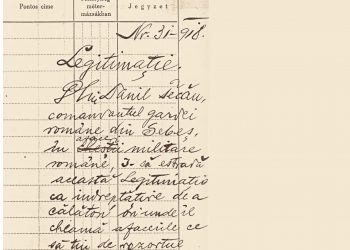 Pontos cime
méter-
mázsákban
Jegyzet
Nr. 31-918.
Legitimație.
Dlui Danil Secău,
comandantul gardei
române din Sebeș,
afaceri
în militare
române, i-să estradă
această Legitimatio
ca îndreptățire de a
călători ori unde îl
chiamă afacerile ce
să țin de rezortul